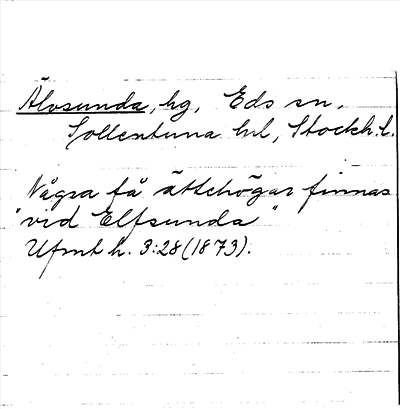 Älvsunda, hg, Eds sn,
Sollentuna hd, Stockh. l.
Några få ättehögar finnas
"vid Elfsunda"
Ufmt h. 3:28 (1873).